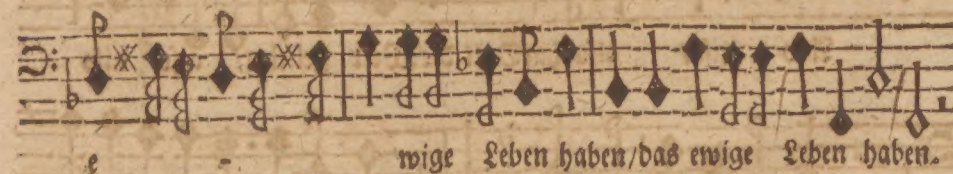 e - wige Leben haben/das ewige Leben haben.